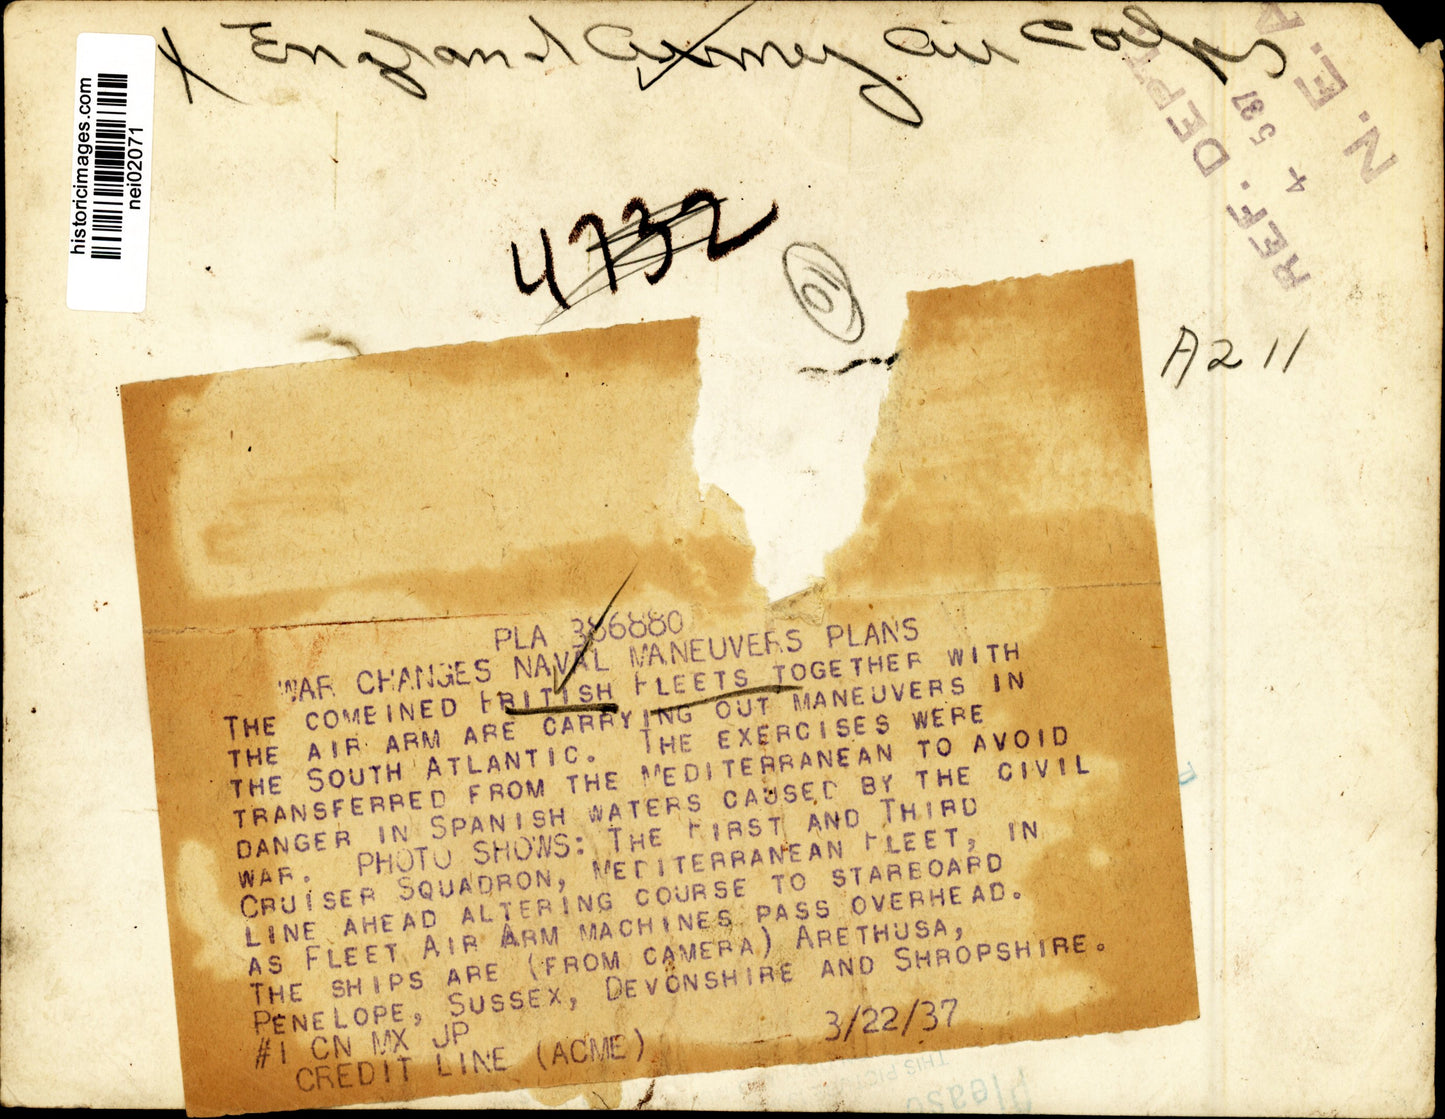 X England Army Air Corps
historicimages.com
nei02071
REF. DEPT.
4 5 37
N. E. A.
4732
10
A211
PLA 386880
WAR CHANGES NAVAL MANEUVERS PLANS
THE COMBINED BRITISH FLEETS TOGETHER WITH
THE AIR ARM ARE CARRYING OUT MANEUVERS IN
THE SOUTH ATLANTIC. THE EXERCISES WERE
TRANSFERRED FROM THE MEDITERRANEAN TO AVOID
DANGER IN SPANISH WATERS CAUSED BY THE CIVIL
WAR. PHOTO SHOWS: THE FIRST AND THIRD
CRUISER SQUADRON, MEDITERRANEAN FLEET, IN
LINE AHEAD ALTERING COURSE TO STARBOARD
AS FLEET AIR ARM MACHINES PASS OVERHEAD.
THE SHIPS ARE (FROM CAMERA) ARETHUSA,
PENELOPE, SUSSEX, DEVONSHIRE AND SHROPSHIRE.
#1 CN MX JP
CREDIT LINE (ACME) 3/22/37
THIS
Please